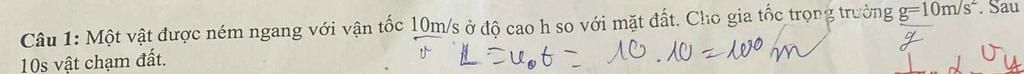 Câu 1: Một vật được ném ngang với vận tốc 10m/s ở độ cao h so với mặt đất. Cho gia tốc trọng trường g=10m/s². Sau
10s vật chạm đất.
v L = v₀t = 10.10 = 100 m g